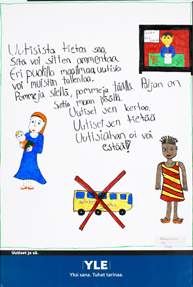 Uutisista tietoa saa,
Sitä voi sitten ammentaa.
Eri puolilla maailmaa uutisia
voi muistiin tallentaa.
Pommeja siellä, pommeja täällä. Paljon on
Sotia maan päällä.
Uutiset sen kertoo.
Uutiset sen tietää
Uutisiahan ei voi
estää!
Uutiset ja sä.
YLE
Yksi sana. Tuhat tarinaa.